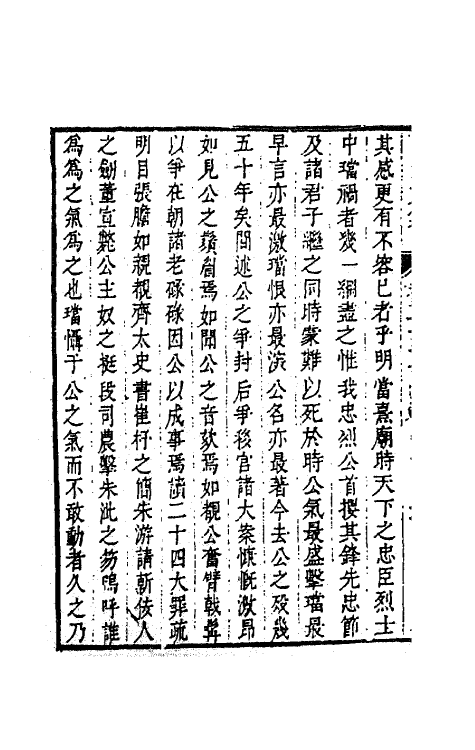 其感更有不容已者乎明當熹廟時天下之忠臣烈士
中璫禍者幾一網盡之惟我忠烈公首攖其鋒先忠節
及諸君子繼之同時蒙難以死於時公氣最盛擊璫最
早言亦最激璫恨亦最深公名亦最著今去公之歿幾
五十年矣間述公之爭封后爭後宮諸大案慷慨激昂
如見公之鬚眉焉如聞公之音欬焉如覩公奮臂戟髯
以爭在朝諸老碌碌因公以成事焉讀二十四大罪疏
明目張膽如親覩齊太史書崔杼之簡朱游請斬佞人
之劍董宣斃公主奴之梃段司農擊朱泚之笏嗚呼誰
為為之氣為之也璫懾于公之氣而不敢動者久之乃